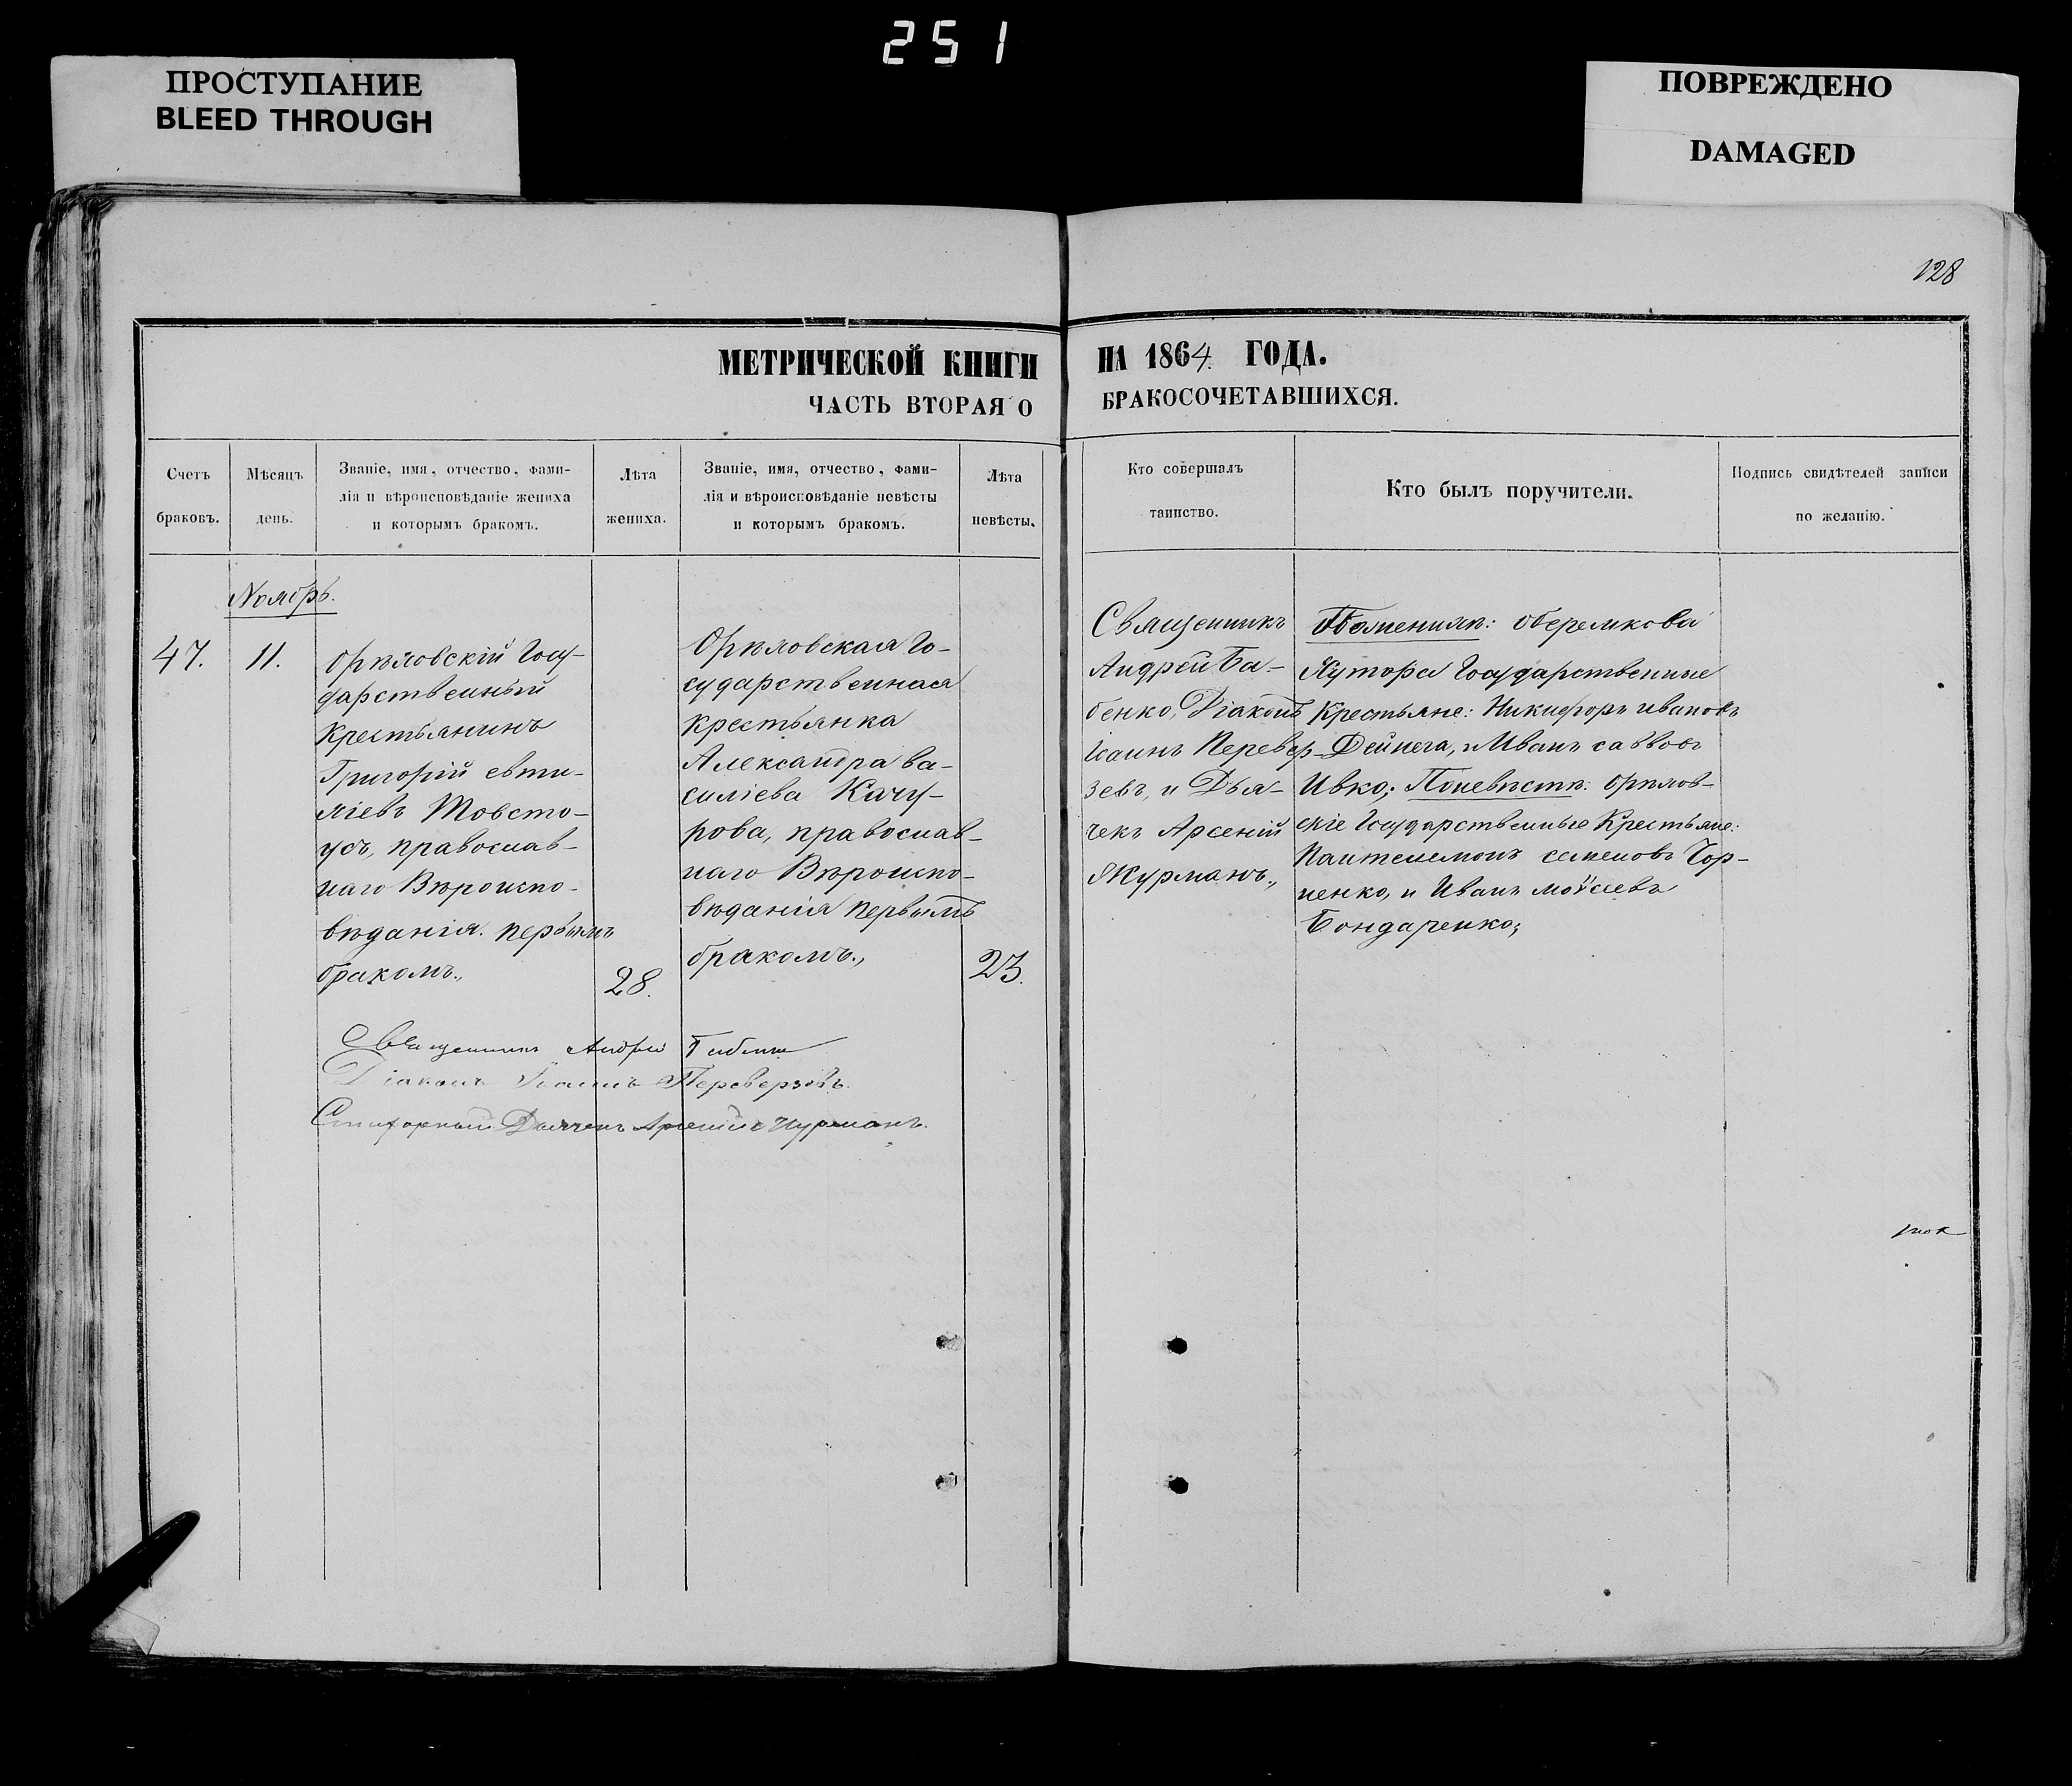 251
ПРОСТУПАНИЕ
BLEED THROUGH
ПОВРЕЖДЕНО
DAMAGED
128
МЕТРИЧЕСКОЙ КНИГИ НА 1864 ГОДА.
ЧАСТЬ ВТОРАЯ О БРАКОСОЧЕТАВШИХСЯ.
Счетъ
браковъ.
Мѣсяцъ
день.
Званіе, имя, отчество, фами-
лія и вѣроисповѣданіе жениха
и которымъ бракомъ.
Лѣта
жениха.
Званіе, имя, отчество, фами-
лія и вѣроисповѣданіе невѣсты
и которымъ бракомъ.
Лѣта
невѣсты.
Кто совершалъ
таинство.
Кто былъ поручители.
Подпись свидѣтелей записи
по желанію.
Ноябрь.
47.
11.
Орѣловскій Госу-
дарственный
Крестьянинъ
Григорій евти-
хіевъ Товсто-
усъ, православ-
наго Вѣроиспо-
вѣданія. первымъ
бракомъ.,
28.
Орѣловская Го-
сударственная
крестьянка
Александра ва-
силіева Качу-
рова, православ-
наго Вѣроиспо-
вѣданія первымъ
бракомъ.,
23.
Священникъ
Андрей Ба-
бенко, Діаконъ
Іоаннъ Перевер-
зевъ, и Дья-
чекъ Арсеній
Журманъ.,
По женихѣ: Оберемкова
Хутора Государственные
Крестьяне: Никифоръ ивановъ
Дейнега, и Иванъ саввовъ
Ивко; По невѣстѣ: Орѣлов-
скіе Государственные Крестьяне:
Пантелемонъ семеновъ Чор-
ненко, и Иванъ моѵсеевъ
Бондаренко;
Священникъ Андрей Бабенко
Діаконъ Іоаннъ Переверзовъ.
Стихарный Дьячекъ Арсеній Журманъ.